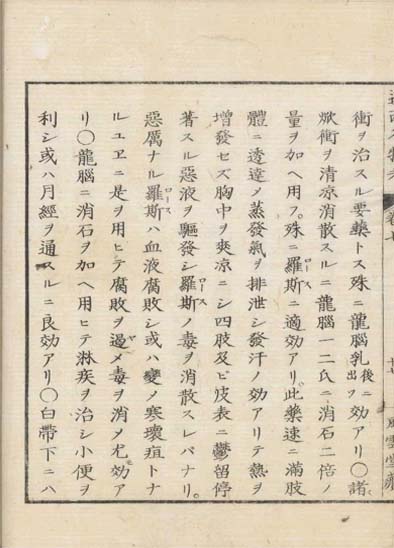 衝ヲ治スル要藥トス殊ニ龍腦乳後ニ出ツ効アリ〇諸
焮衝ヲ清涼消散スルニ龍腦一二氐ニ消石二倍ノ
量ヲ加ヘ用フ殊ニ羅斯ロースニ適効アリ此藥速ニ滿肢
體ニ透達メ蒸發氣ヲ排泄シ發汗ノ効アリテ熱ヲ
増發セズ胸中ヲ爽涼ニシ四肢及ビ皮表ニ鬱留停
著スル惡液ヲ驅發シ羅斯ロースノ毒ヲ消散スレバナリ
惡厲ナル羅斯ロースハ血液腐敗シ或ハ變メ寒壞疽トナ
ルユヱニ是ヲ用ヒテ腐敗ヲ遏メ毒ヲ消メ尤効ア
リ〇龍腦ニ消石ヲ加ヘ用ヒテ淋疾ヲ治シ小便ヲ
利シ或ハ月經ヲ通スルニ良効アリ〇白帶下ニハ